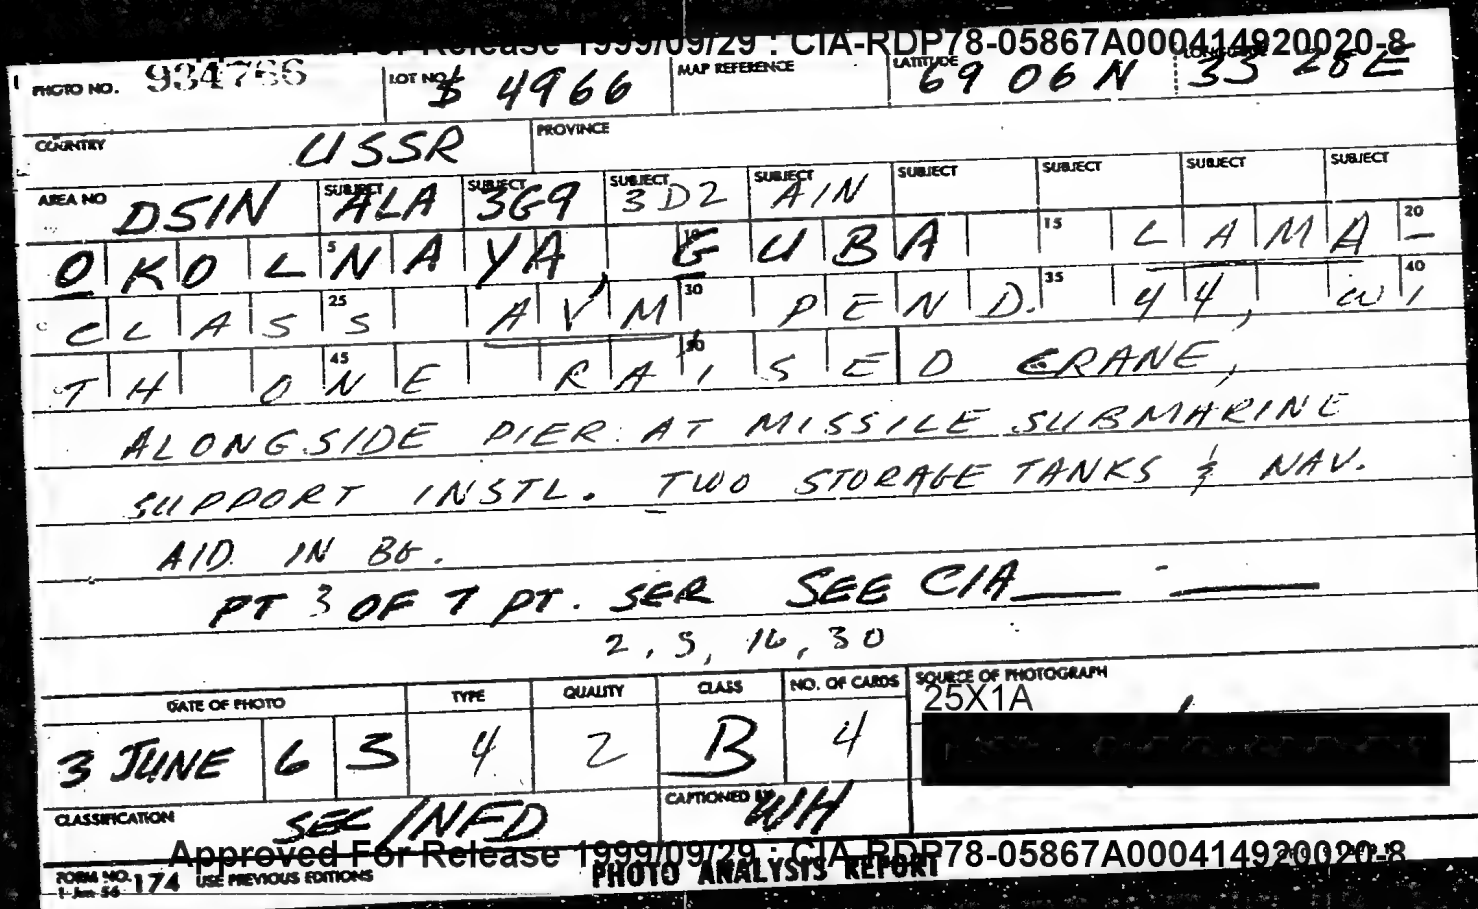 Approved For Release 1999/09/29 : CIA-RDP78-05867A000414920020-8
PHOTO NO. 934766 LOT NO. $ 4966 MAP REFERENCE LATITUDE 69 06 N LONGITUDE 33 28 E
COUNTRY USSR PROVINCE
AREA NO DSIN SUBJECT ALA SUBJECT 3G9 SUBJECT 3D2 SUBJECT AIN SUBJECT SUBJECT SUBJECT SUBJECT
OKOLNAYA, GUBA LAMA -
5 10 15 20
CLASS AVM PEND. 44, WI
25 30 35 40
TH ONE RAISED CRANE,
45 50
ALONGSIDE PIER AT MISSILE SUBMARINE
SUPPORT INSTL. TWO STORAGE TANKS & NAV.
AID IN BG.
PT 3 OF 7 PT. SER SEE CIA ___ - ___
2, 5, 16, 30
DATE OF PHOTO TYPE QUALITY CLASS NO. OF CARDS SOURCE OF PHOTOGRAPH
25X1A
3 JUNE 6 3 4 2 B 4
CLASSIFICATION SEC/NFD CAPTIONED BY WH
Approved For Release 1999/09/29 : CIA-RDP78-05867A000414920020-8
FORM NO. 174 USE PREVIOUS EDITIONS PHOTO ANALYSIS REPORT
1-Jan 56